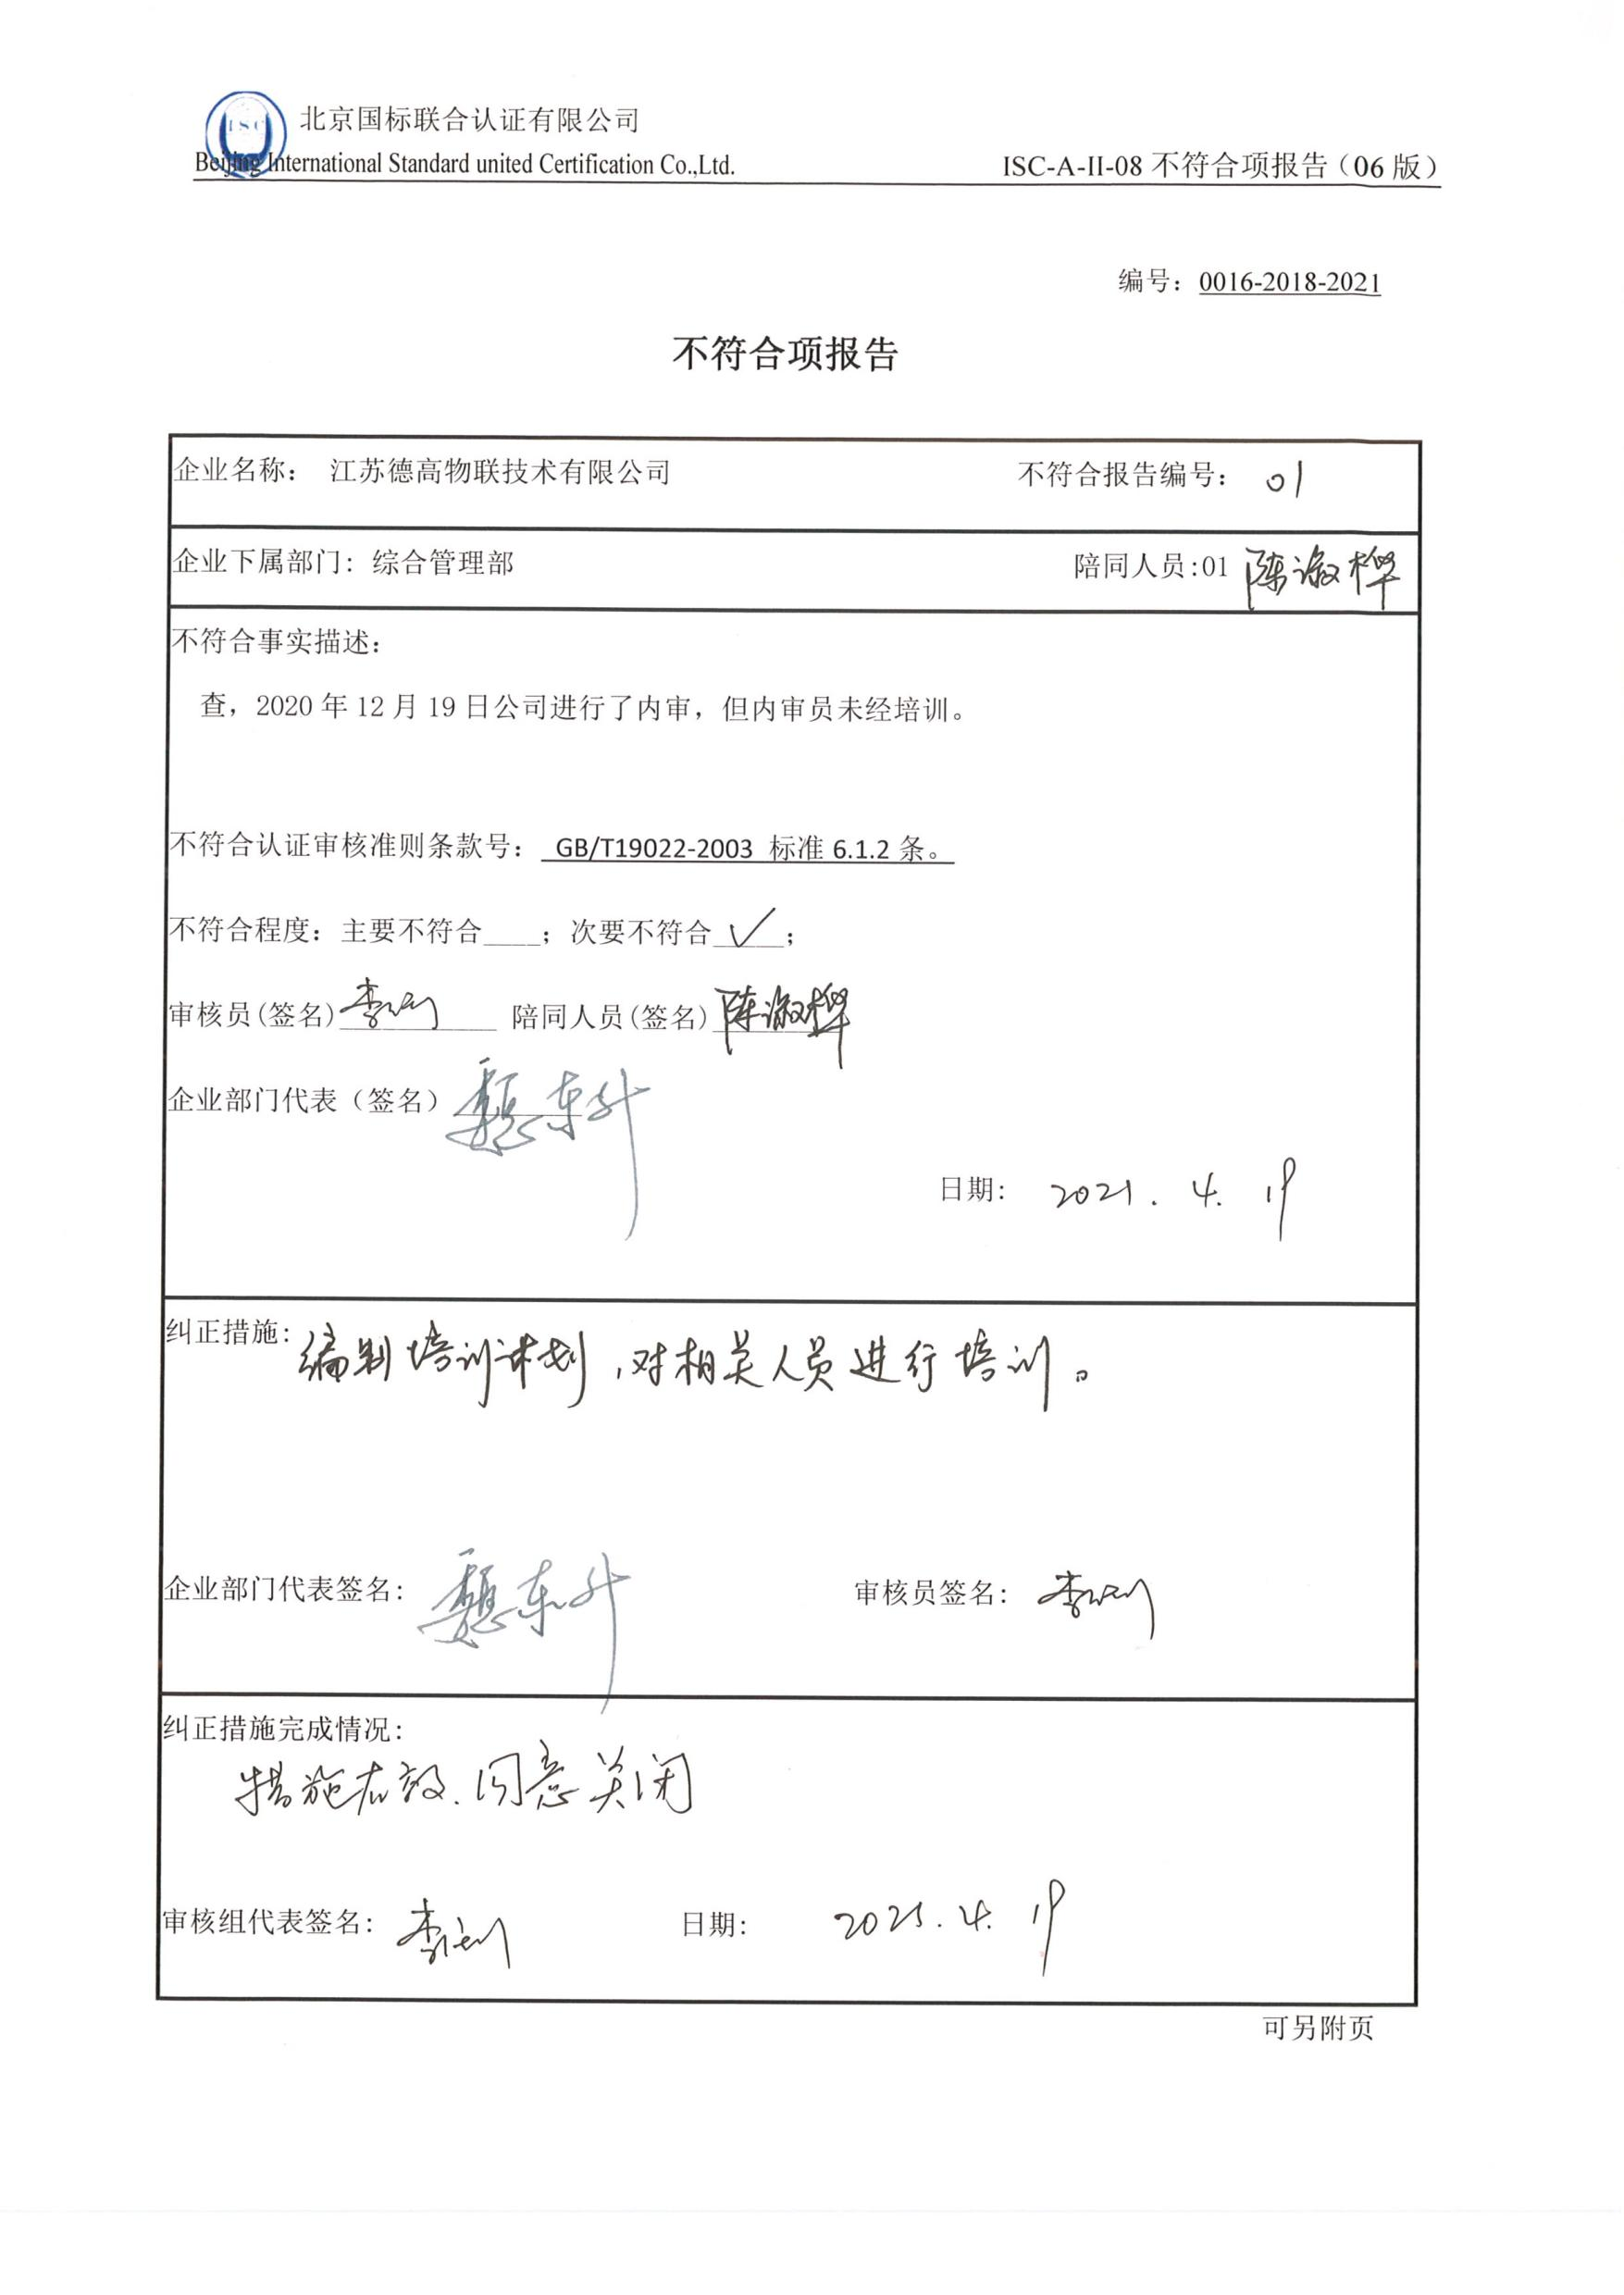 ISC
北京国标联合认证有限公司
Beijing International Standard united Certification Co.,Ltd.
ISC-A-II-08 不符合项报告（06 版）
编号：0016-2018-2021
不符合项报告
企业名称： 江苏德高物联技术有限公司 不符合报告编号： 01
企业下属部门：综合管理部 陪同人员:01 陈淑桦
不符合事实描述：
查，2020 年 12 月 19 日公司进行了内审，但内审员未经培训。
不符合认证审核准则条款号： GB/T19022-2003 标准 6.1.2 条。
不符合程度：主要不符合____；次要不符合 ✓ ；
审核员(签名) 陪同人员(签名) 陈淑桦
企业部门代表（签名） 魏东升
日期： 2021. 4. 19
纠正措施： 编制培训计划，对相关人员进行培训。
企业部门代表签名： 魏东升 审核员签名：
纠正措施完成情况：
措施有效.同意关闭
审核组代表签名： 日期： 2021.4. 19
可另附页